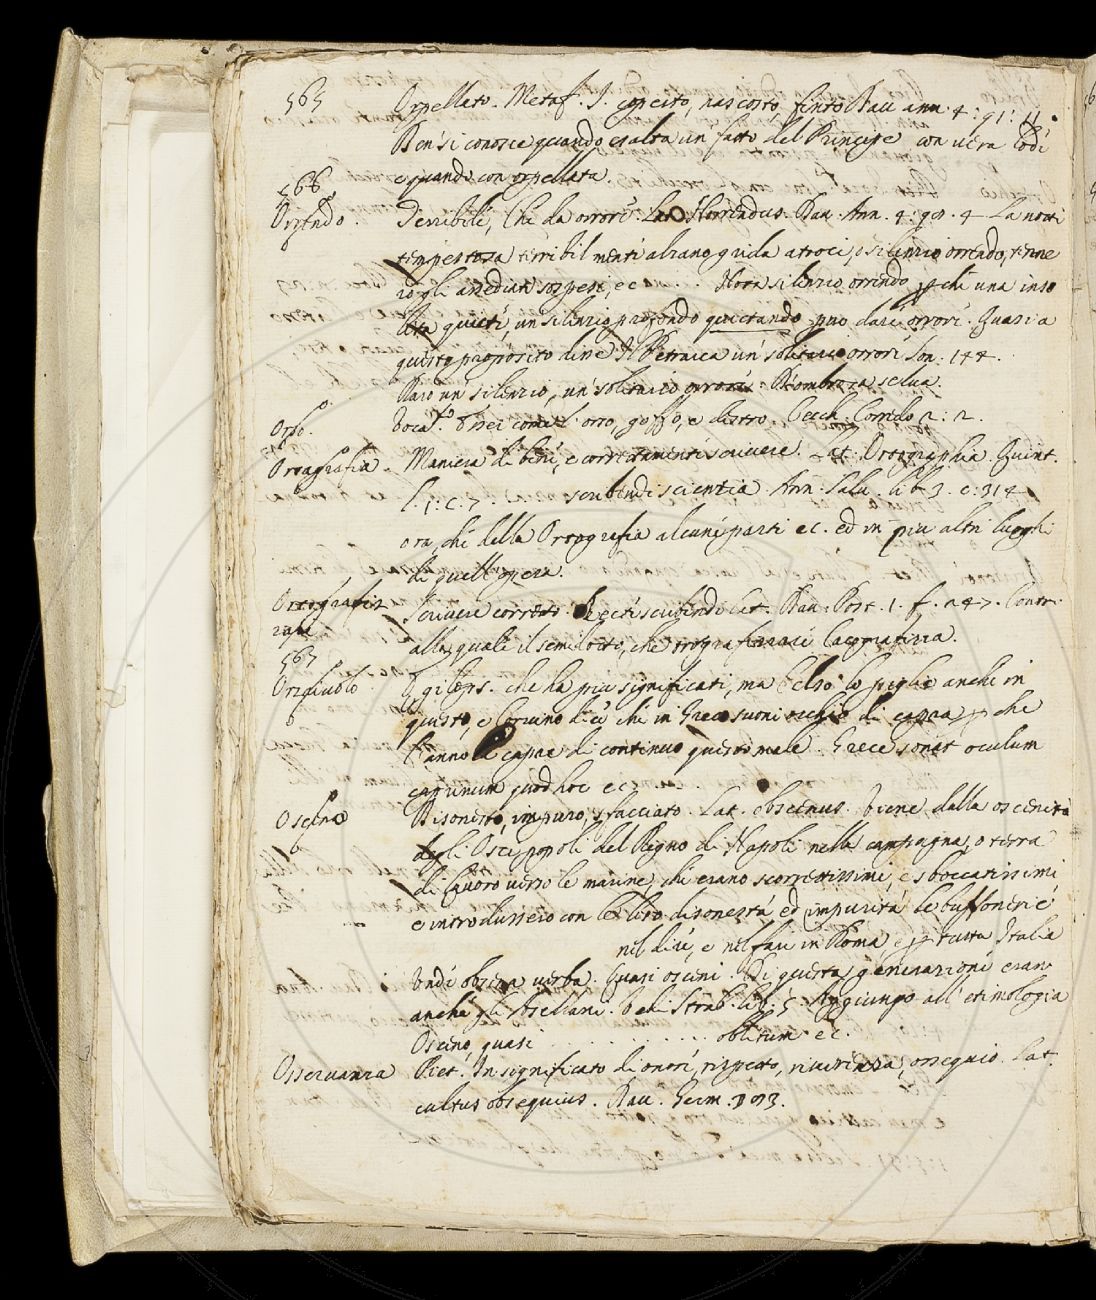 565 Orpellato. Metaf. J. coperto, nascosto, finto Dav. ann. 4: 91: 11.
Ben si conosce quando esalta un fatto del Principe con vera lode
e quando con orpellata.
566
Orrendo Terribile, che da orrore. Lat. Horrendus. Dav. Ann. 4: 4 La notte
tempestosa terribilmente alzano grida atroci, silenzio orrendo, tenne
ro gli assediati sospesi, ec .... Hora silenzio orrendo che una inso
lita quiete, un silenzio profondo quietando puo dare orrore. Quasi a
questo proposito disse il Petrarca un solitario orrore Son. 144.
Raro un silenzio, un solitario orrore D'ombrosa selva.
Orso. l'orso, goffo, e destro. Cecch. Corredo 2: 2.
Ortografia. Maniera di bene, e correttamente scrivere. Lat. Ortographia. Quint.
l. 1: c. 7. scribendi scientia. Ann. Salv. lib. 3. c: 314
ora, che della Ortografia alcune parti ec. ed in piu altri luoghi
di quell'opera.
Ortografiz
zare Scrivere corretto. Recte scribendi Lat. Dav. Post. 1. f. 247. Contr.
alla quale il semidotto, che ortografizzare cacografizza.
567
Orzaiuolo che ha piu significati, ma Celso lo piglia anche in
questo, e che in Greco suoni occhio di capra che
l'anno le capre di continuo questo male. Grece sonat oculum
caprinum quod hoc ec.
Osceno Disonesto, impuro, sfacciato. Lat. obscenus. viene dalla oscenità
degli Osci popoli del Regno di Napoli nella campagna, o terra
di Lavoro verso le marine, che erano scorrettissimi, e sboccatissimi
e introdussero con la loro disonestà ed impurità le buffonerie
nel dire, e nel fare in Roma e tutta Italia
Onde obscena verba. Quasi osceni. Di questa generazione eran
anche gli Atellani. Vedi Strab. lib. 5. Aggiungo all'etimologia
Osceno, quasi ........... oblitum ec.
Osservanza Riet. In significato di onore, rispetto, riverenza, ossequio. Lat.
cultus obsequius. Dav. Germ.